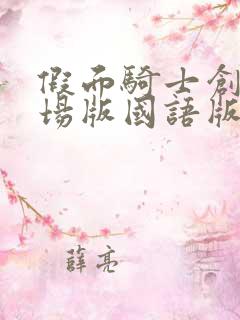 假面騎士創
場版國語版
薛亮